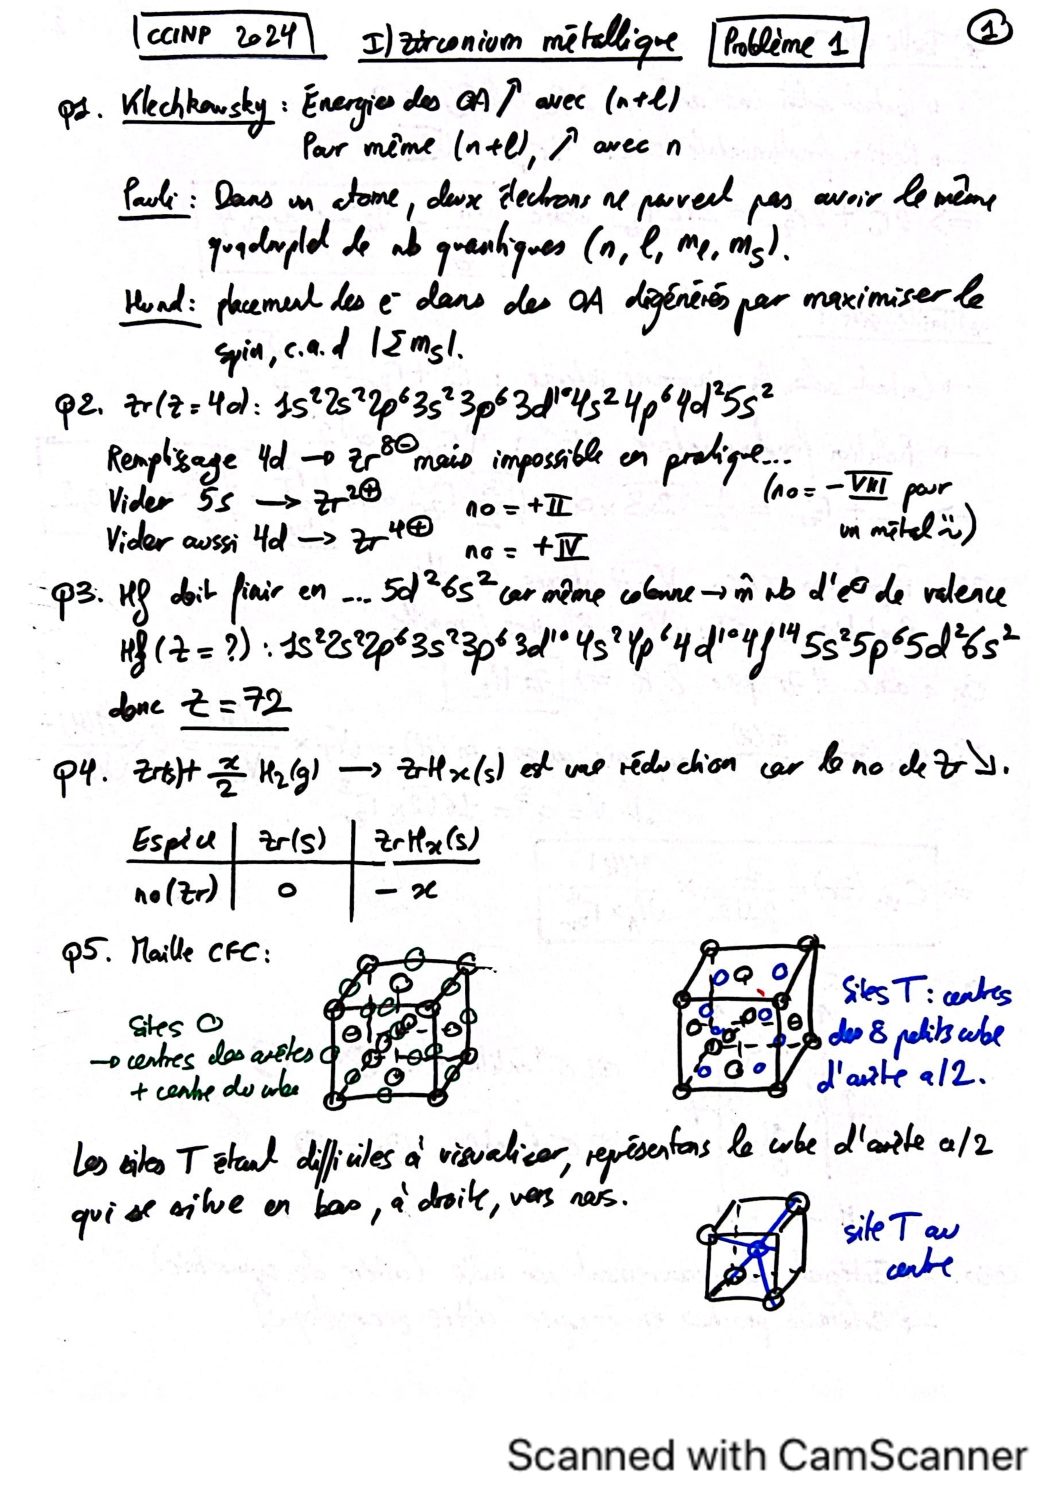 CCINP 2024 I) Zirconium métallique Problème 1 1
Q1. Klechkowsky : Énergies des OA ↗ avec (n+l)
Pour même (n+l), ↗ avec n
Pauli : Dans un atome, deux électrons ne peuvent pas avoir le même
quadruplet de nb quantiques (n, l, ml, ms).
Hund : placement des e⁻ dans des OA dégénérés par maximiser le
spin, c.a.d |Σ ms|.
Q2. Zr(Z = 40) : 1s²2s²2p⁶3s²3p⁶3d¹⁰4s²4p⁶4d²5s²
Remplissage 4d → Zr⁸⊖ mais impossible en pratique...
(no = -VIII pour
Vider 5s → Zr²⊕ no = +II
un métal ¨)
Vider aussi 4d → Zr⁴⊕ no = +IV
Q3. Hf doit finir en ... 5d²6s² car même colonne → m̂ nb d'e⊖ de valence
Hf (Z = ?) : 1s²2s²2p⁶3s²3p⁶3d¹⁰4s²4p⁶4d¹⁰4f¹⁴5s²5p⁶5d²6s²
donc Z = 72
Q4. Zr(s)+ x/2 H₂(g) → ZrHx(s) est une réduction car le no de Zr ↘.
Espèce | Zr(s) | ZrHx(s)
no(Zr) | 0 | - x
Q5. Maille CFC :
Sites O
→ centres des arêtes
+ centre du cube
Sites T : centres
des 8 petits cube
d'arête a/2.
Les sites T étant difficiles à visualiser, représentons le cube d'arête a/2
qui se situe en bas, à droite, vers nous.
site T au
centre
Scanned with CamScanner